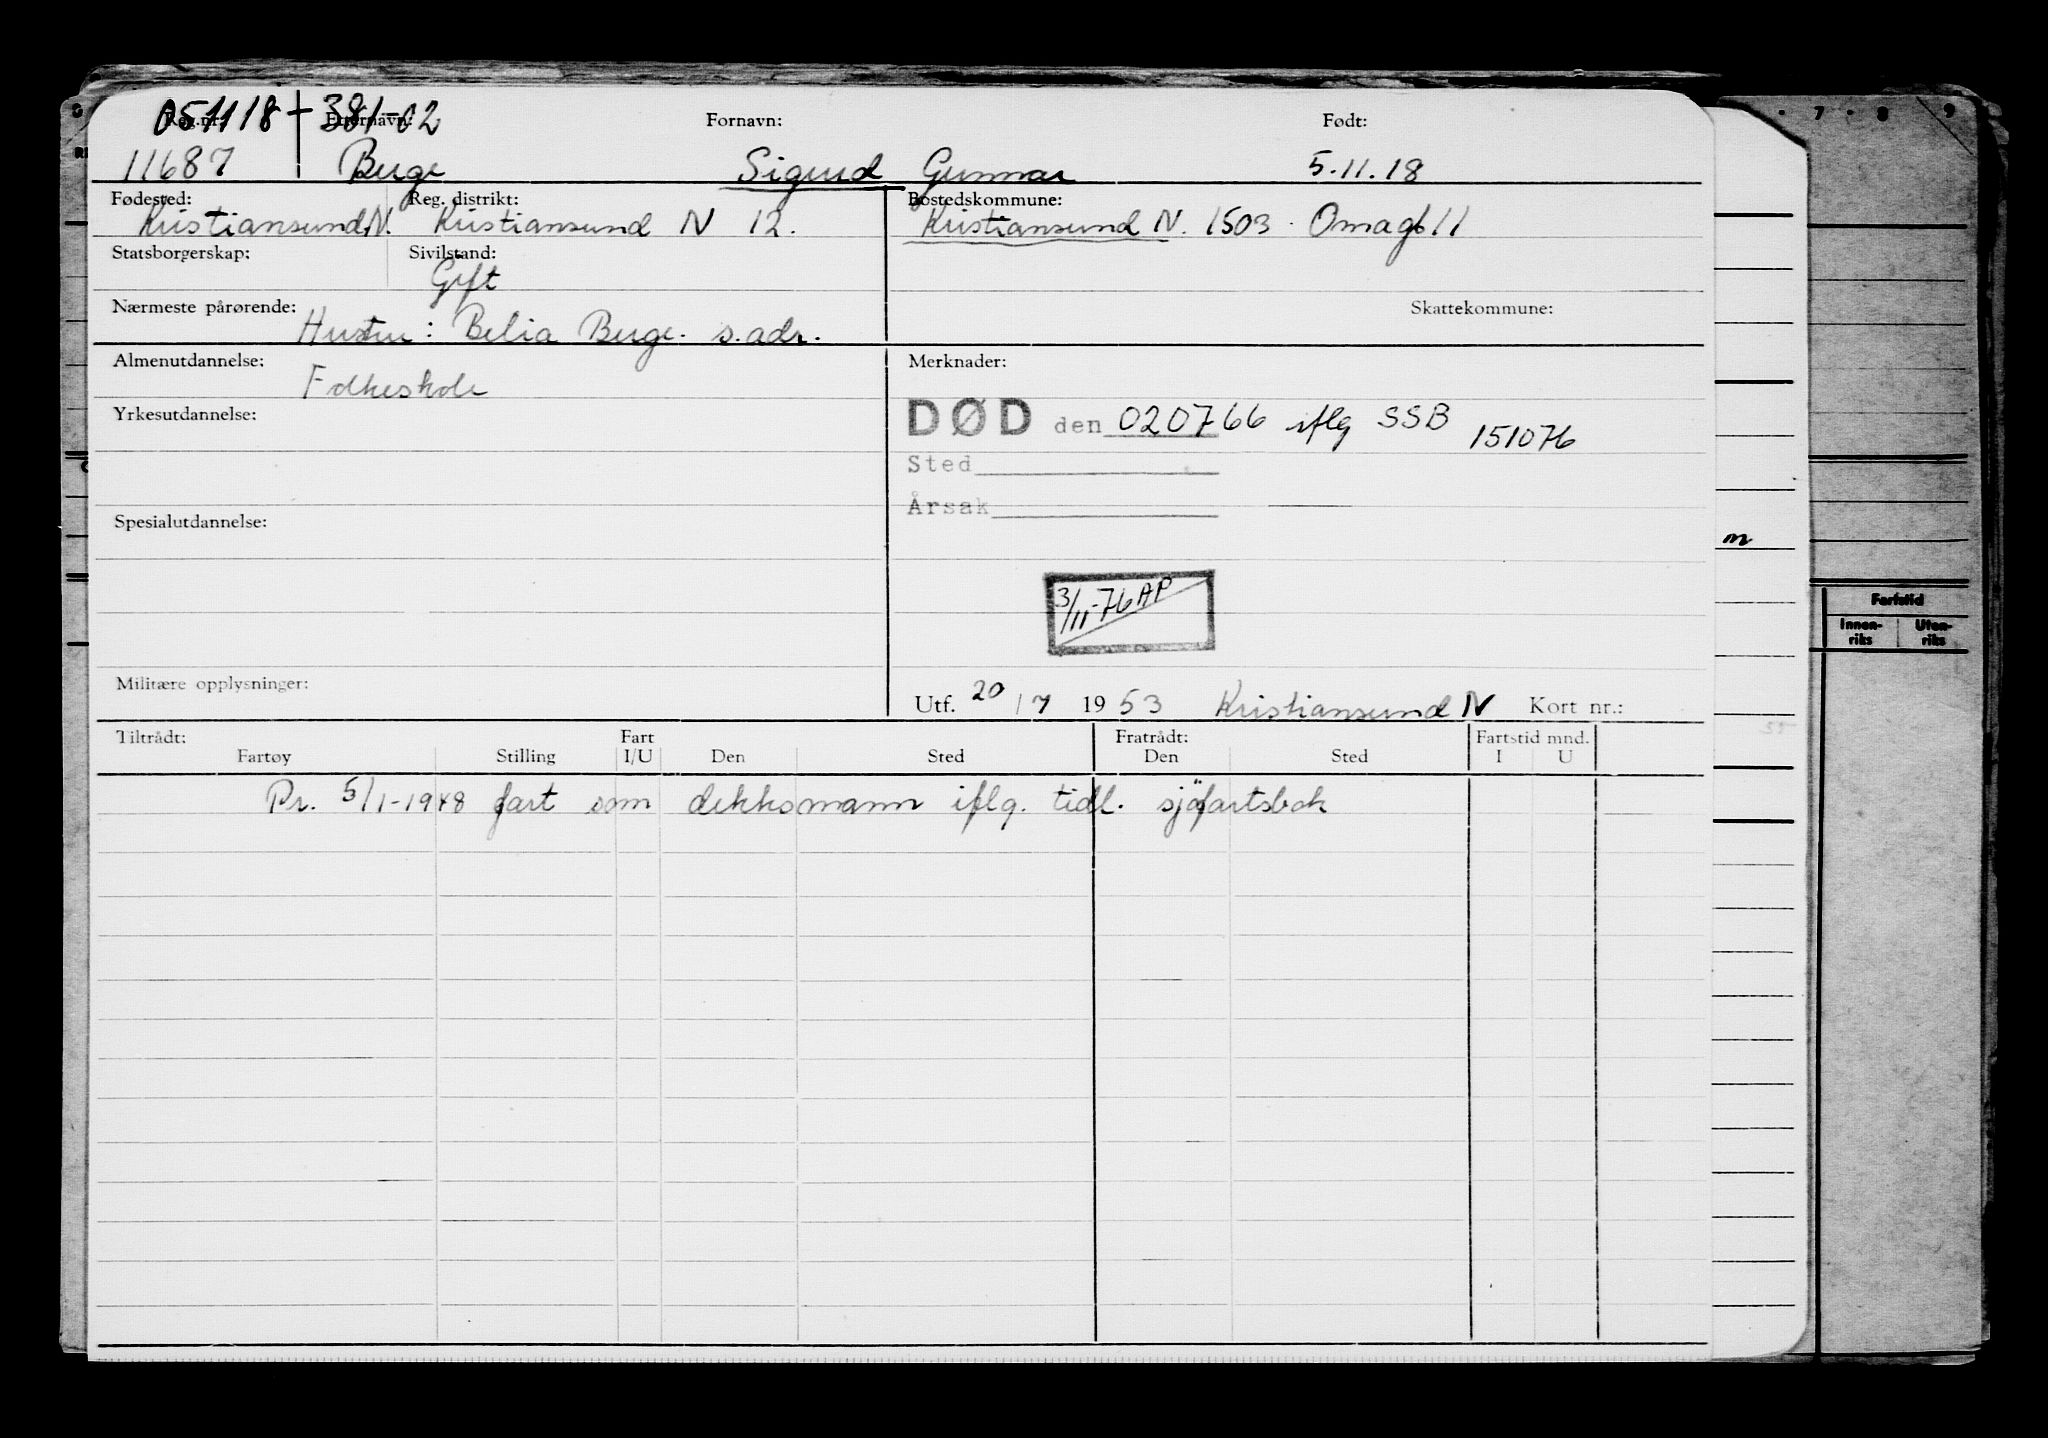 051118 + 381-02
Reg.nr. Etternavn: Fornavn: Født:
11687 Berge Sigurd Gunnar 5.11.18
Fødested: Reg. distrikt: Bostedskommune:
Kristiansund N. Kristiansund N 12. Kristiansund N. 1503. Omagt 11
Statsborgerskap: Sivilstand:
Gift
Nærmeste pårørende: Skattekommune:
Hustru: Belia Berge. s. adr.
Almenutdannelse: Merknader:
Folkeskole
Yrkesutdannelse: DØD den 020766 iflg SSB 151076
Sted
Årsak
Spesialutdannelse:
3/11-76 AP
Militære opplysninger:
Utf. 20/7 1953 Kristiansund N Kort nr.:
Tiltrådt: Fart Fratrådt: Fartstid mnd.
Fartøy Stilling I/U Den Sted Den Sted I U
Pr. 5/1-1948 fart som dekksmann iflg. tidl. sjöfartsbok
7 · 8 9
m
Fartstid
Innen-riks Uten-riks